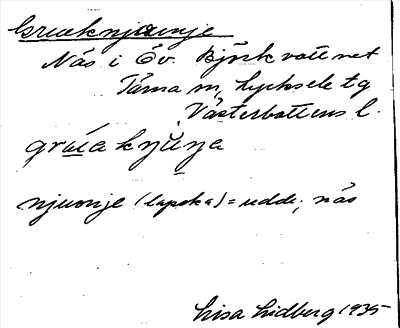 Grueknjuonje
Näs i Öv. Björkvattnet
Tärna sn, Lycksele tg
Västerbottens l.
grúa knjŭnja
njuonje (lapska) = udde; näs
Lisa Lidberg 1935